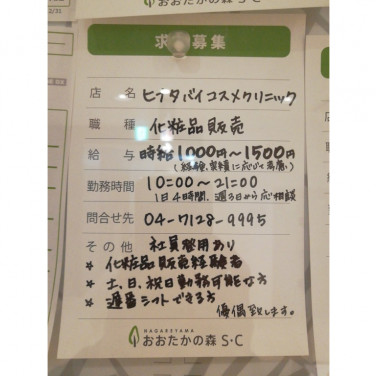 おおたかの森 S・C
求 募集
店名 ヒフタバイコスメクリニック
職種 化粧品販売
給与 時給1000円〜1500円
(経験、実績に応じて考慮)
勤務時間 10:00〜21:00
1日4時間、週3日から応相談
問合せ先 04-7128-9995
その他 社員登用あり
★ 化粧品販売経験者
★ 土、日、祝日勤務可能な方
★ 遅番シフトできる方
優偶致します。
NAGAREYAMA
おおたかの森 S・C